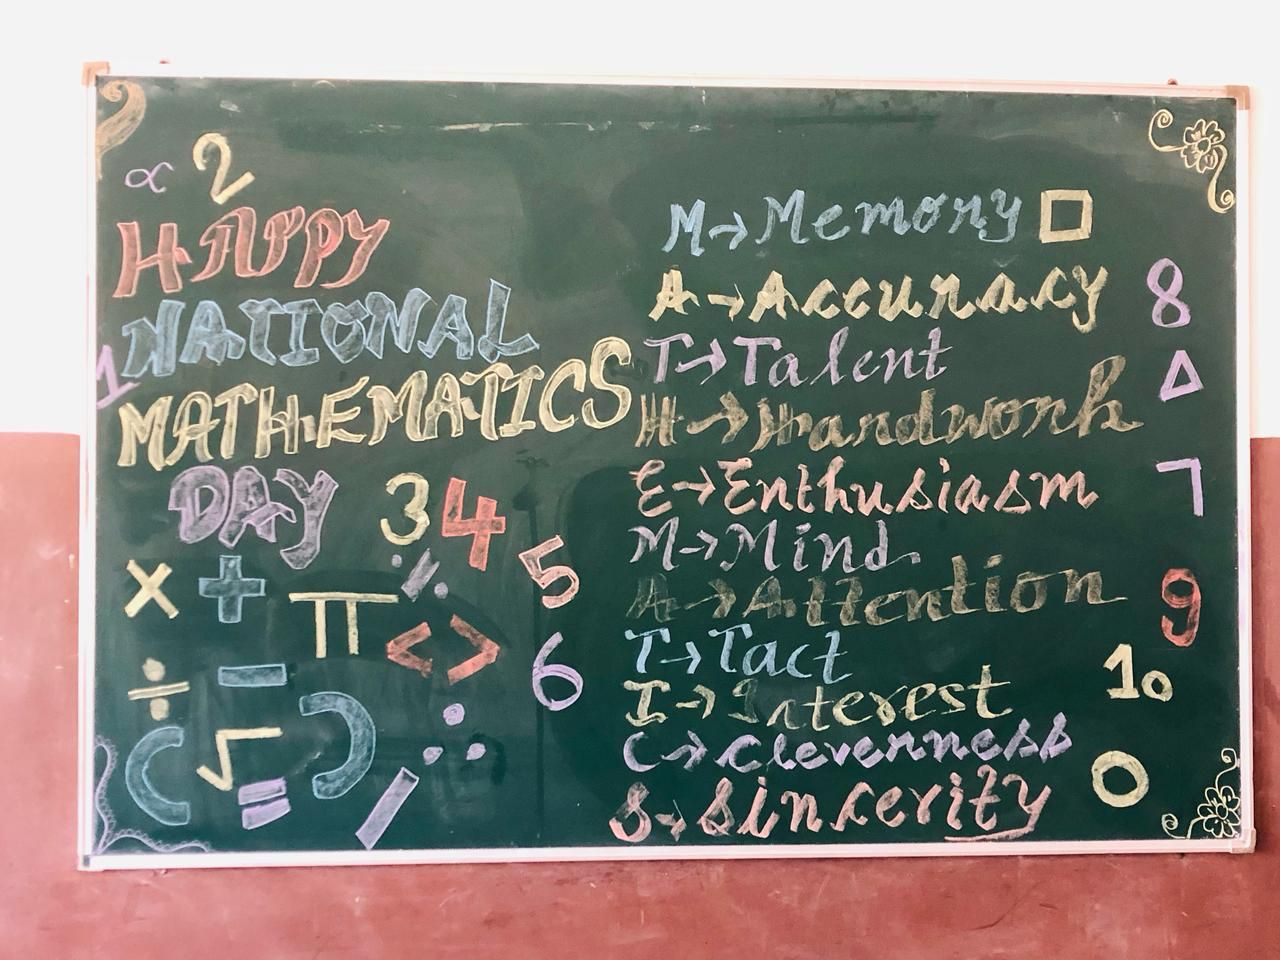 ∝ 2
HAPPY
NATIONAL
1
MATHEMATICS
DAY 3 4
× + π % < > 5
÷ − 6
( √ ) ∴
= /
M→Memory □
A→Accuracy 8
T→Talent △
H→Hardwork 7
E→Enthusiasm
M→Mind
A→Attention 9
T→Tact
I→Interest 10
C→Cleverness
S→Sincerity ○